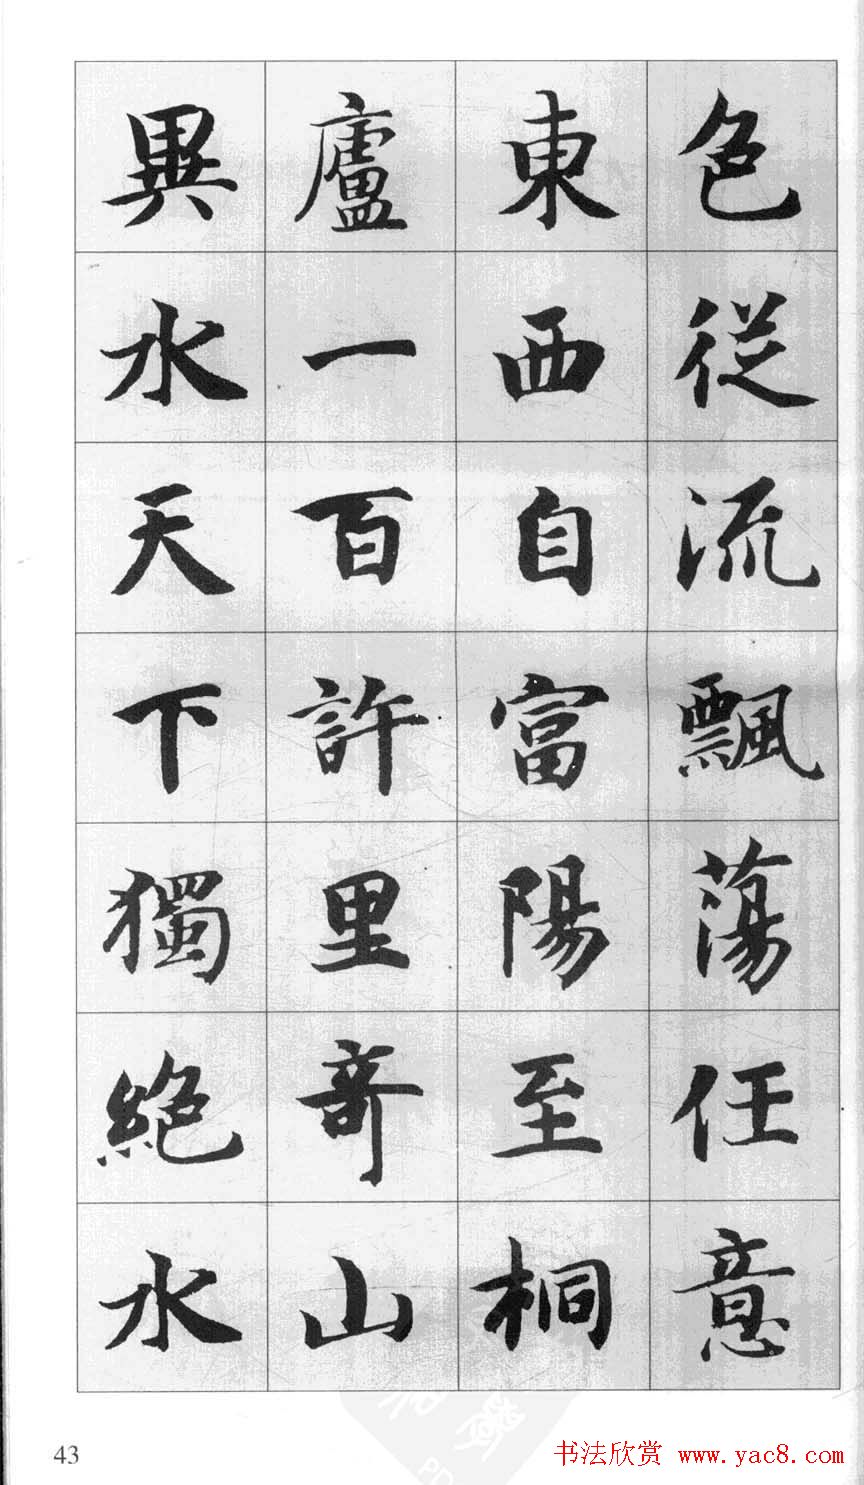 色從流飄蕩任意
東西自富陽至桐
廬一百許里奇山
異水天下獨絕水
43
书法欣赏 www.yac8.com